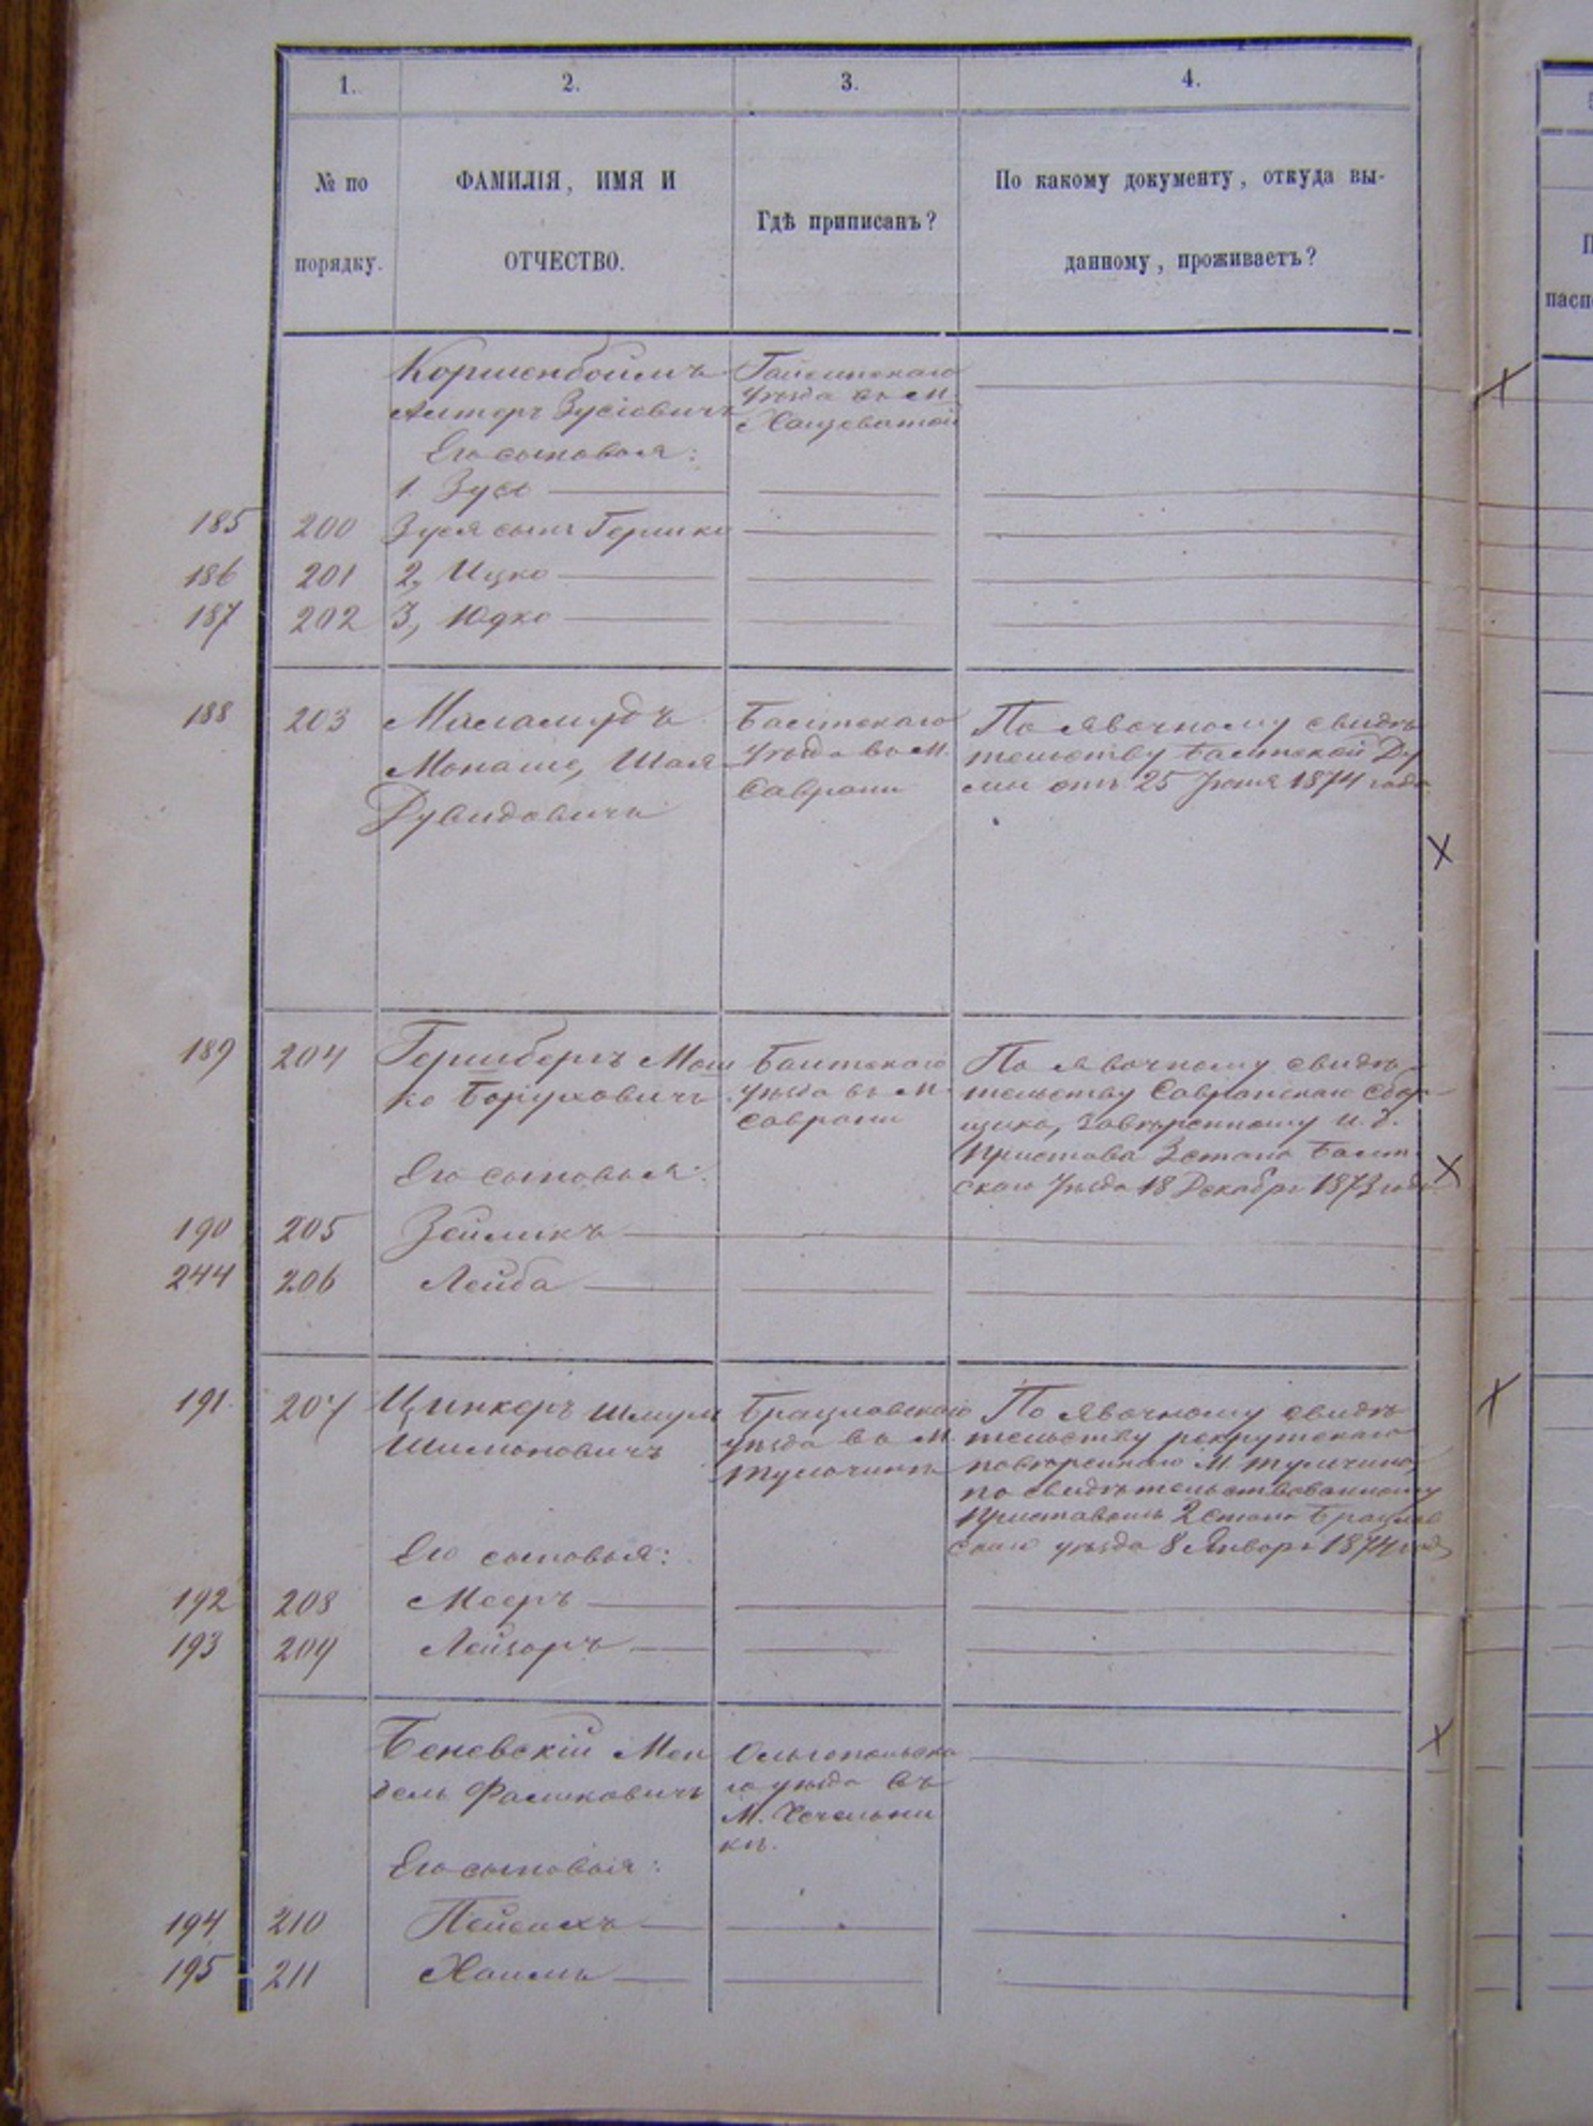 1. 2. 3. 4.
№ по
порядку.
ФАМИЛІЯ, ИМЯ И
ОТЧЕСТВО.
Гдѣ приписанъ?
По какому документу, откуда вы-
данному, проживаетъ?
П
паспо
Коршенбоймъ
Алтеръ Зусіовичъ
Его сыновья:
1. Зусь
Гайсинскаго
уѣзда въ м.
Хащеватой
185 200 Зуся сынъ Гершко
186 201 2, Ицко
187 202 3, Юдко
188 203 Маламудъ
Монаше, Шая
Дувидовичъ
Балтскаго
уѣзда въ м.
Саврани
По явочному свидѣ
тельству Балтской Ду
мы отъ 25 Іюня 1874 года
189 204 Гершбергъ Мош
ко Боруховичъ
Его сыновья:
Балтскаго
уѣзда въ м.
Саврани
По явочному свидѣ
тельству Савранскаго Сбор
щика, завѣренному и. д.
Пристава 3 стана Балт
скаго уѣзда 18 Декабря 1873 года
190 205 Зейликъ
244 206 Лейба
191. 207 Цинкеръ Шмуль
Шимоновичъ
Его сыновья:
Брацлавскаго
уѣзда въ м.
Тульчинѣ
По явочному свидѣ
тельству рекрутскаго
повѣреннаго М. Тульчина,
по свидѣтельствованному
Приставомъ 2 стана Брацлав
скаго уѣзда 8 Января 1874 года
192 208 Мееръ
193 209 Лейзоръ
Беневскій Мен
дель Фаликовичъ
Его сыновья:
Ольгопольска
го уѣзда въ
М. Чечельни
кѣ.
194 210 Пейсахъ
195 211 Хаимъ